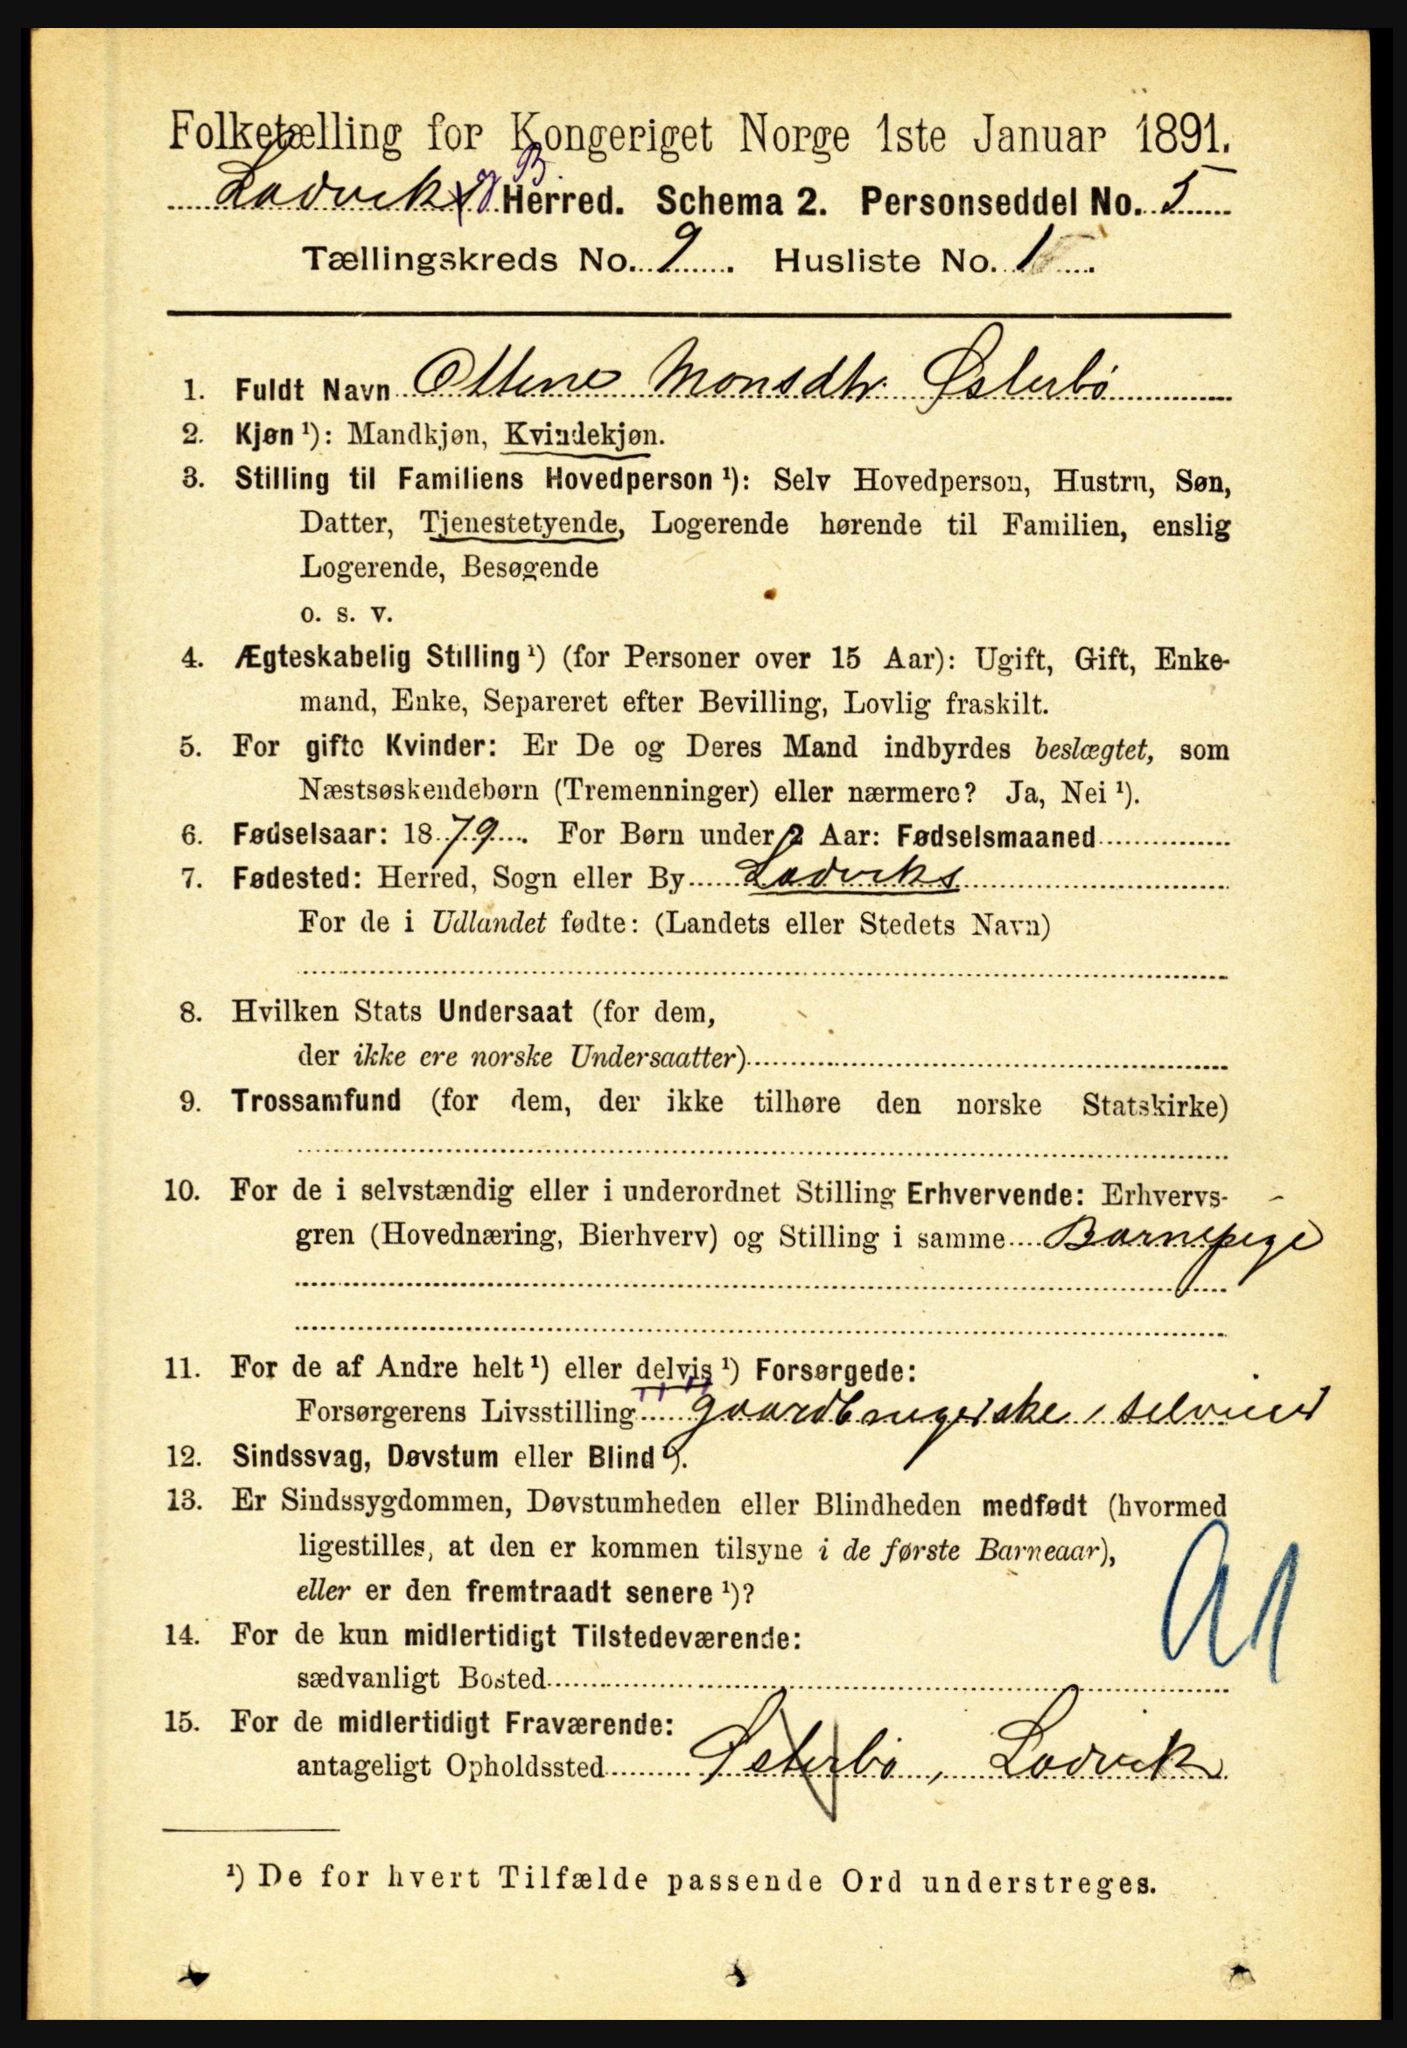 Folketælling for Kongeriget Norge 1ste Januar 1891.
Ladvik og B. Herred. Schema 2. Personseddel No. 5
Tællingskreds No. 9. Husliste No. 1.
1. Fuldt Navn Ottine Monsdtr. Østerbö
2. Kjøn ¹): Mandkjøn, Kvindekjøn.
3. Stilling til Familiens Hovedperson ¹): Selv Hovedperson, Hustru, Søn,
Datter, Tjenestetyende, Logerende hørende til Familien, enslig
Logerende, Besøgende
o. s. v.
4. Ægteskabelig Stilling ¹) (for Personer over 15 Aar): Ugift, Gift, Enke-
mand, Enke, Separeret efter Bevilling, Lovlig fraskilt.
5. For gifte Kvinder: Er De og Deres Mand indbyrdes beslægtet, som
Næstsøskendebørn (Tremenninger) eller nærmere? Ja, Nei ¹).
6. Fødselsaar: 1879. For Børn under 2 Aar: Fødselsmaaned
7. Fødested: Herred, Sogn eller By Ladviks
For de i Udlandet fødte: (Landets eller Stedets Navn)
8. Hvilken Stats Undersaat (for dem,
der ikke ere norske Undersaatter)
9. Trossamfund (for dem, der ikke tilhøre den norske Statskirke)
10. For de i selvstændig eller i underordnet Stilling Erhvervende: Erhvervs-
gren (Hovednæring, Bierhverv) og Stilling i samme Barnepige
11. For de af Andre helt ¹) eller delvis ¹) Forsørgede:
Forsørgerens Livsstilling gaardbrugerske, selveier
12. Sindssvag, Døvstum eller Blind ¹).
13. Er Sindssygdommen, Døvstumheden eller Blindheden medfødt (hvormed
ligestilles, at den er kommen tilsyne i de første Barneaar),
eller er den fremtraadt senere ¹)?
14. For de kun midlertidigt Tilstedeværende:
sædvanligt Bosted
15. For de midlertidigt Fraværende:
antageligt Opholdssted Østerbö, Ladvik
¹) De for hvert Tilfælde passende Ord understreges.